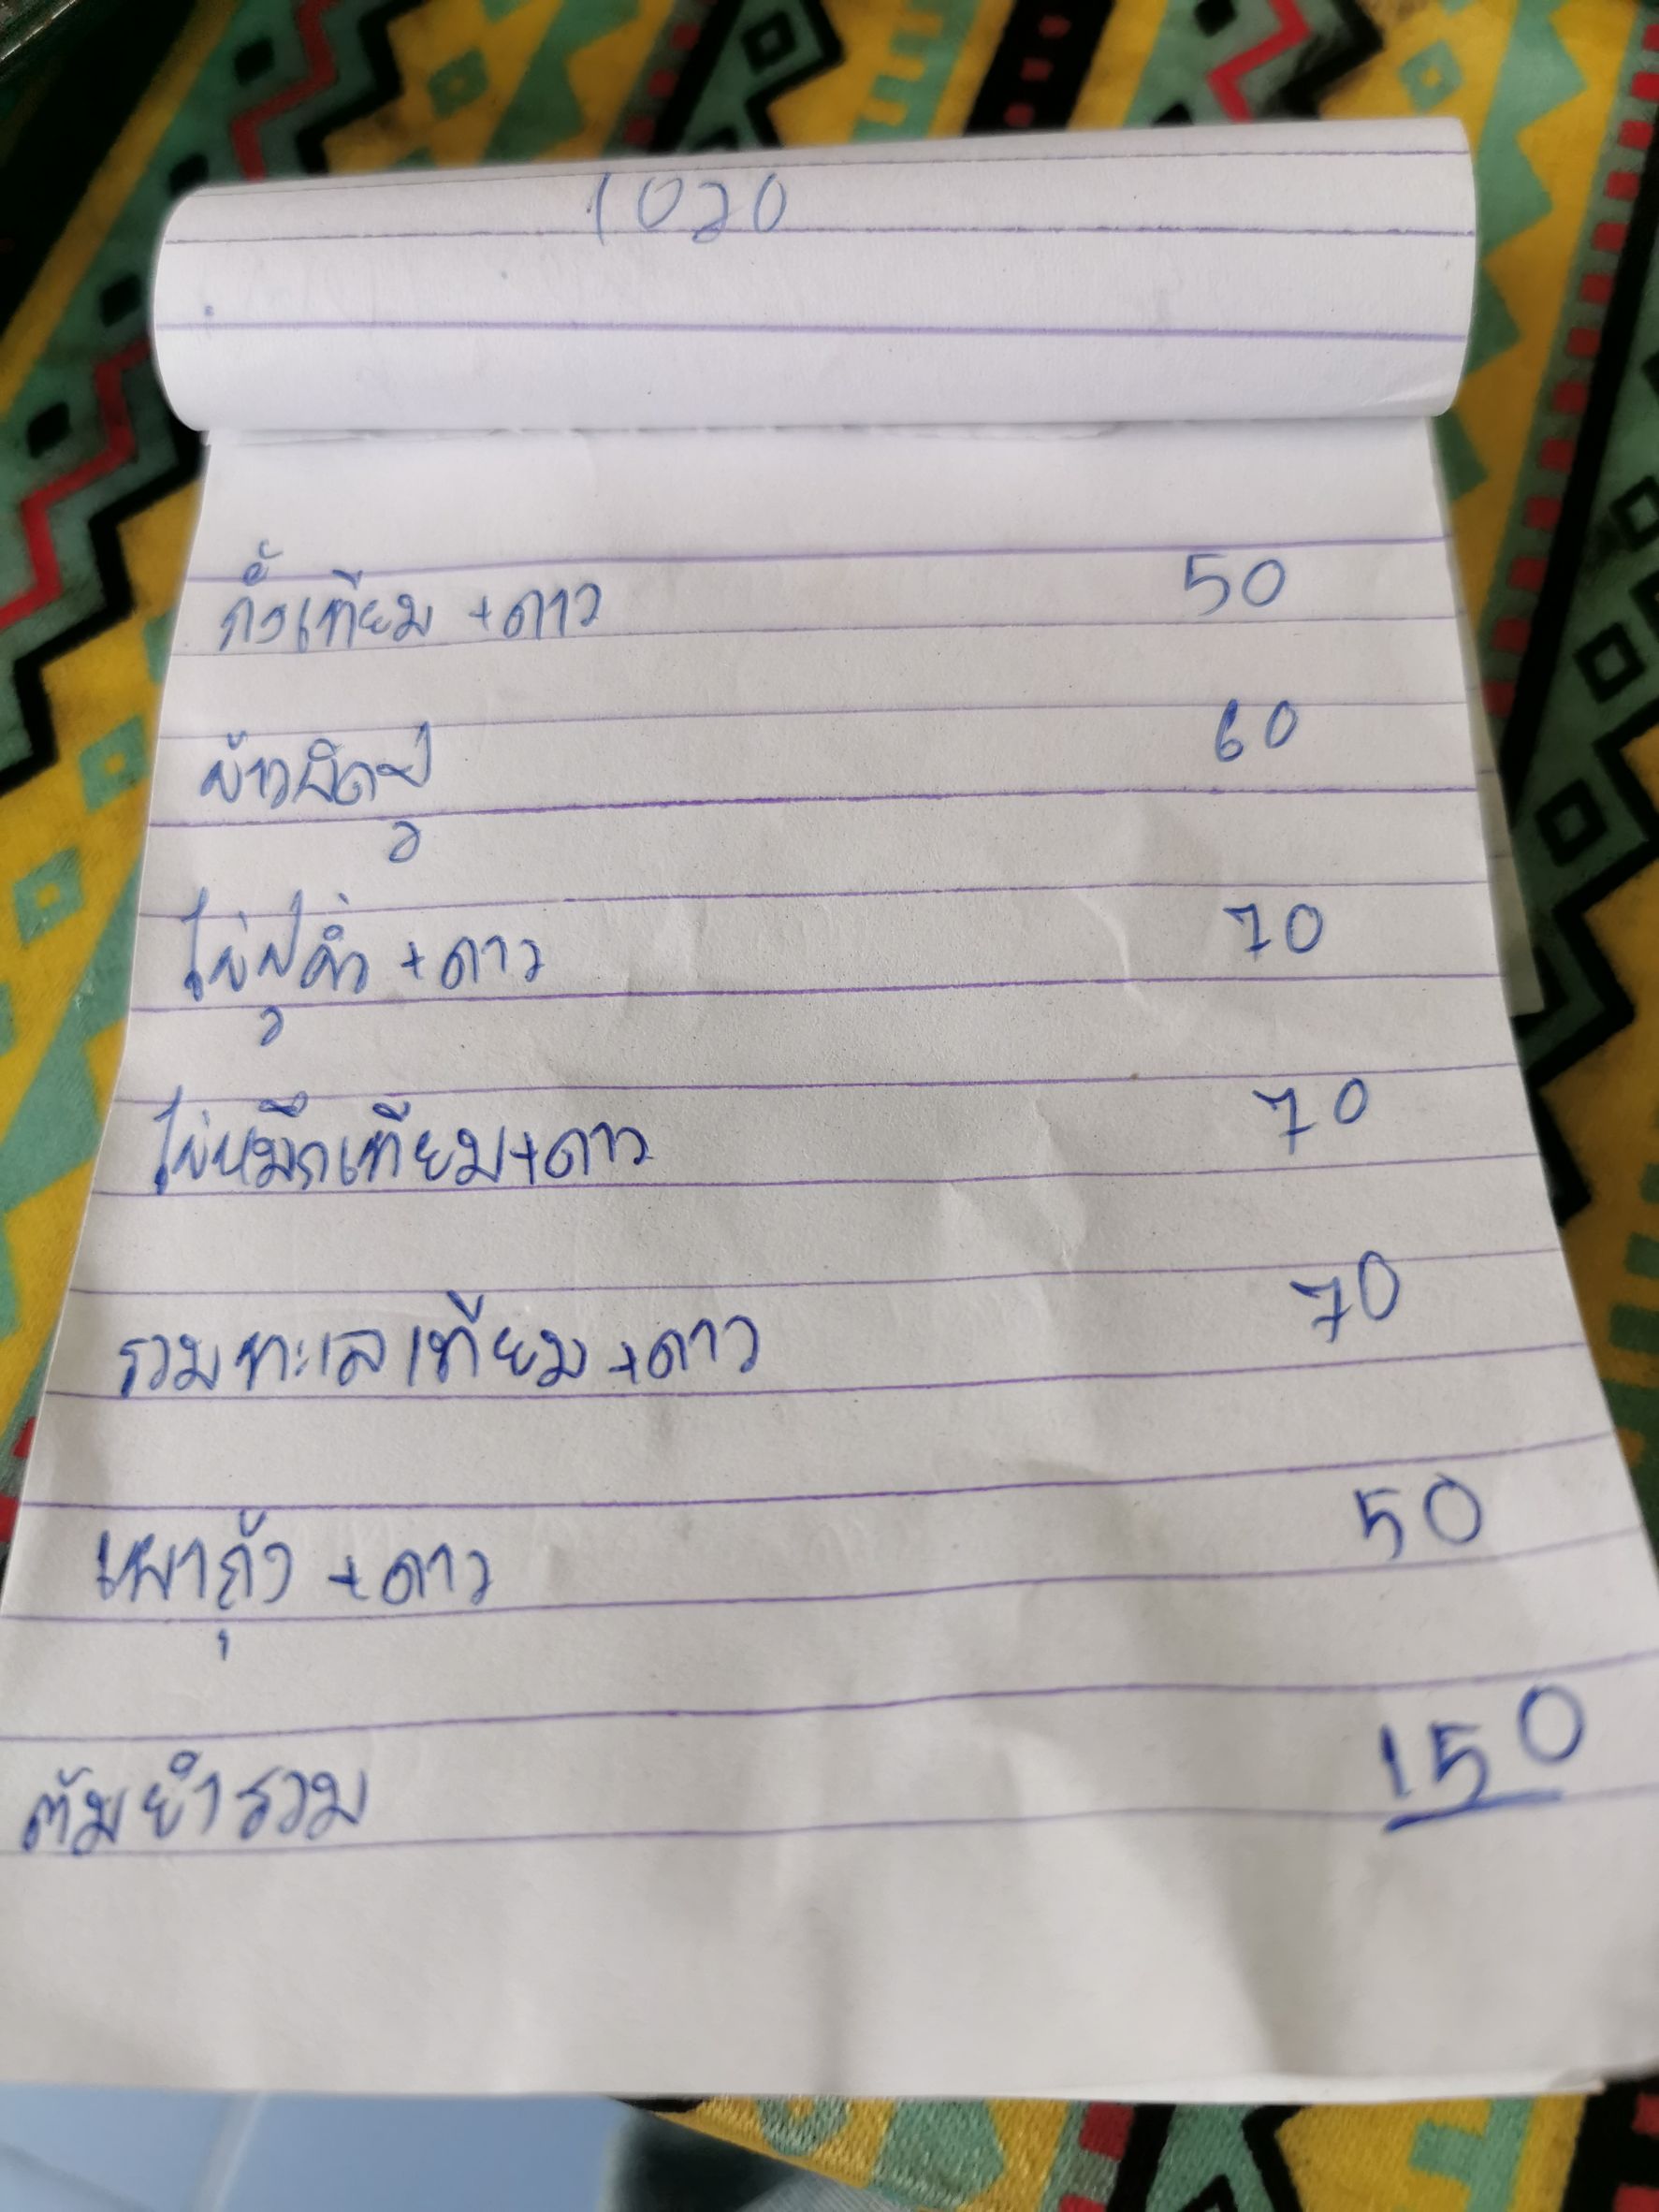 1020
กั้งเทียม +ดาว 50
ข้าวผัดปู 60
ไข่ปูคั่ว +ดาว 70
ไข่หมึกเทียม+ดาว 70
รวมทะเลเทียม+ดาว 70
เพากุ้ง +ดาว 50
ต้มยำรวม 150